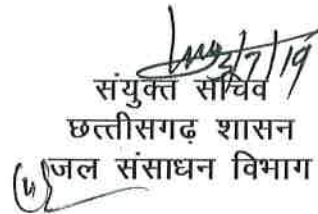 3/7/19
संयुक्त सचिव
छत्तीसगढ़ शासन
जल संसाधन विभाग